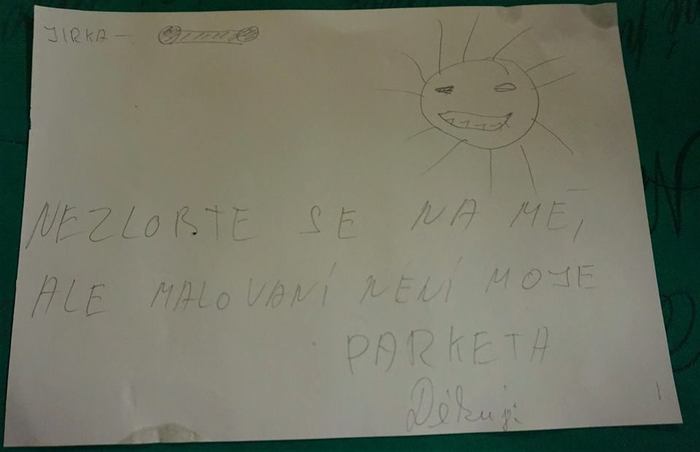 JIRKA –
NEZLOBTE SE NA MĚ,
ALE MALOVANÍ NENÍ MOJE
PARKETA
Děkuji